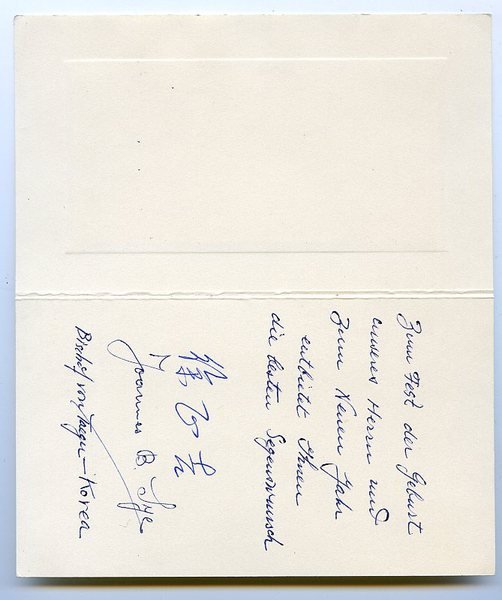 Zum Fest der Geburt
unseres Herrn und
zum Neuen Jahr
entbietet Ihnen
die besten Segenswunsch
徐正吉
Joannes B. Sye
Bischof von Taegu - Korea